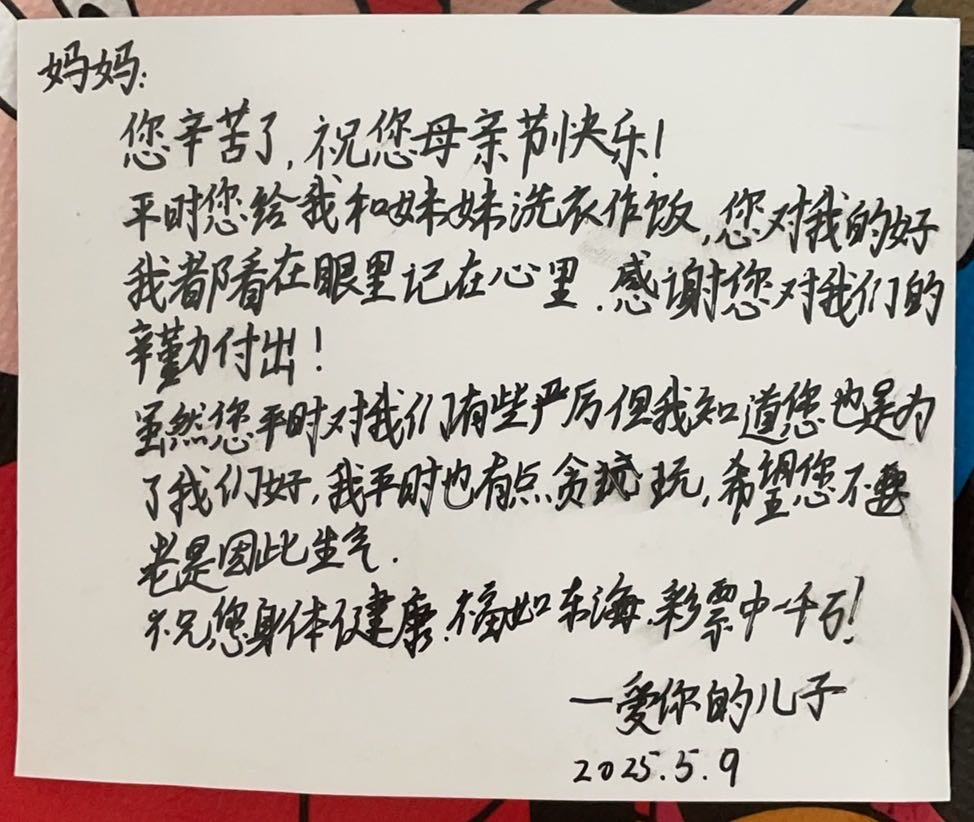 妈妈:
您辛苦了,祝您母亲节快乐!
平时您给我和妹妹洗衣作饭,您对我的好
我都看在眼里记在心里.感谢您对我们的
辛勤付出!
虽然您平时对我们有些严厉但我知道您也是为
了我们好,我平时也有点贪玩,希望您不要
老是因此生气.
祝您身体健康.福如东海.彩票中一千万!
一爱你的儿子
2025.5.9